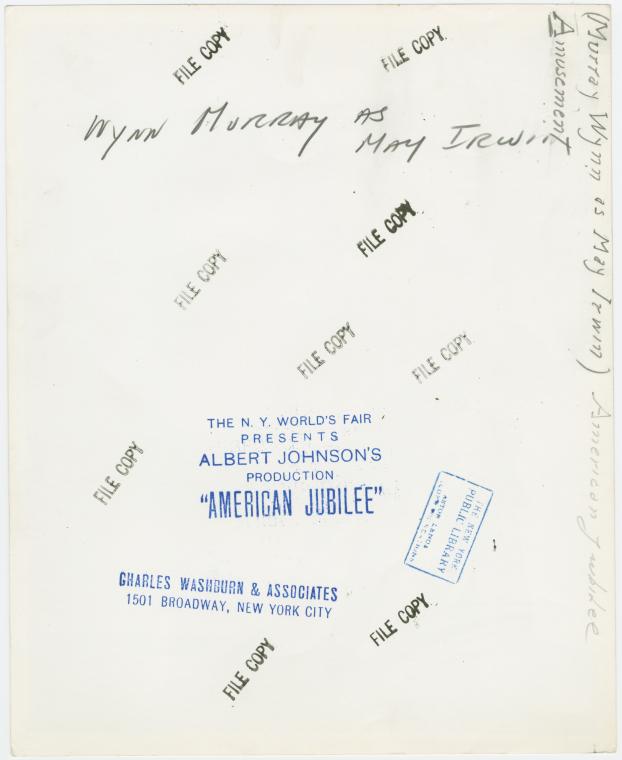 FILE COPY
FILE COPY
WYNN MURRAY AS
MAY IRWIN
Amusement
(Murray Wynn as May Irwin) American Jubilee
FILE COPY
FILE COPY
FILE COPY
FILE COPY
FILE COPY
THE N. Y. WORLD'S FAIR
PRESENTS
ALBERT JOHNSON'S
PRODUCTION
"AMERICAN JUBILEE"
THE NEW YORK
PUBLIC LIBRARY
ASTOR LENOX
CHARLES WASHBURN & ASSOCIATES
1501 BROADWAY, NEW YORK CITY
FILE COPY
FILE COPY